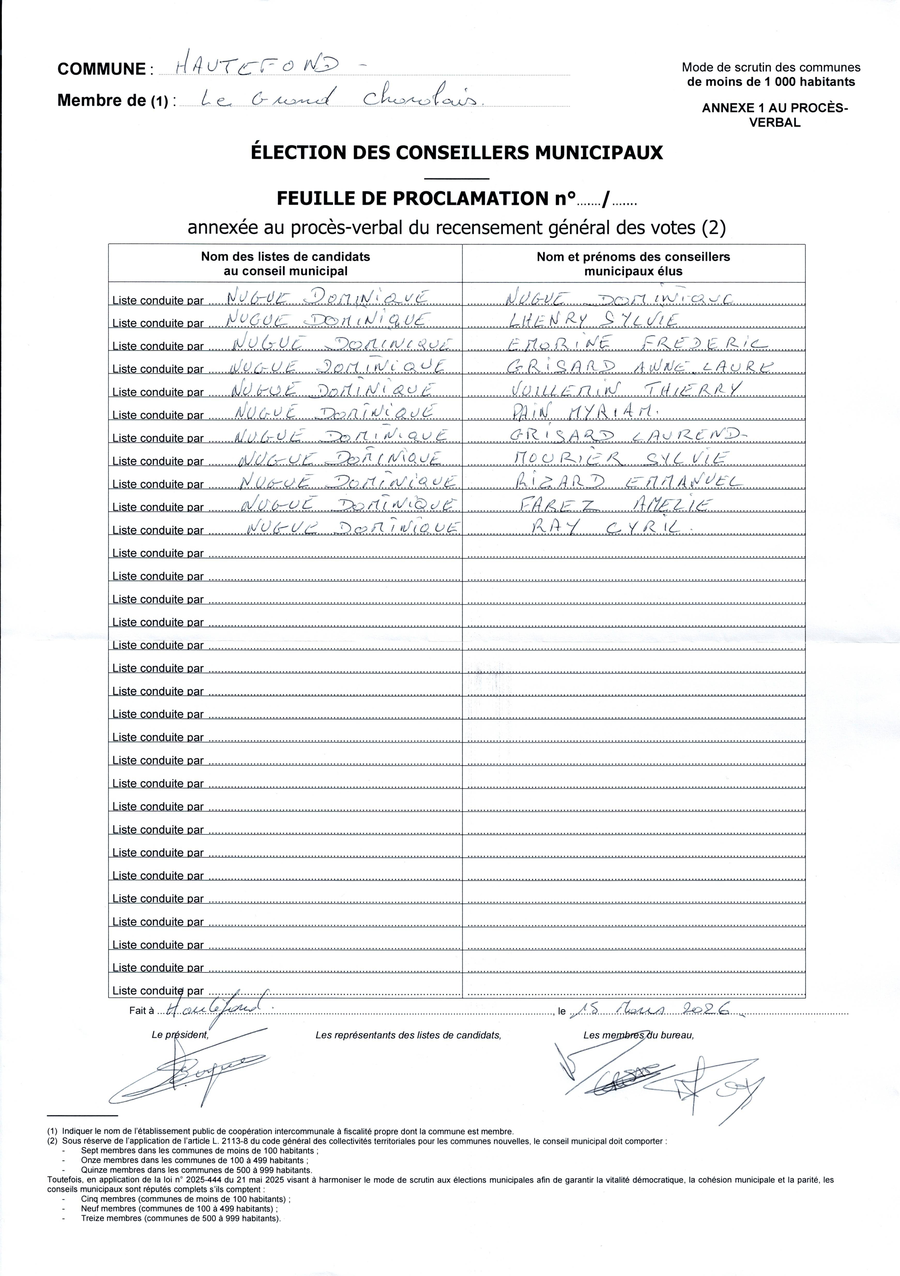 COMMUNE : HAUTEFOND -
Mode de scrutin des communes
de moins de 1 000 habitants
Membre de (1) : Le Grand Charolais.
ANNEXE 1 AU PROCÈS-
VERBAL
ÉLECTION DES CONSEILLERS MUNICIPAUX
FEUILLE DE PROCLAMATION n°....../......
annexée au procès-verbal du recensement général des votes (2)
Nom des listes de candidats
au conseil municipal
Nom et prénoms des conseillers
municipaux élus
Liste conduite par NUGUE DOMINIQUE NUGUE DOMINIQUE
Liste conduite par NUGUE DOMINIQUE LHENRY SYLVIE
Liste conduite par NUGUE DOMINIQUE EMORINE FREDERIC
Liste conduite par NUGUE DOMINIQUE GRISARD ANNE LAURE
Liste conduite par NUGUE DOMINIQUE VUILLEMIN THIERRY
Liste conduite par NUGUE DOMINIQUE PAIN MYRIAM.
Liste conduite par NUGUE DOMINIQUE GRISARD LAUREND-
Liste conduite par NUGUE DOMINIQUE MOURIER SYLVIE
Liste conduite par NUGUE DOMINIQUE RIZARD EMMANUEL
Liste conduite par NUGUE DOMINIQUE FAREZ AMELIE
Liste conduite par NUGUE DOMINIQUE RAY CYRIL.
Liste conduite par
Liste conduite par
Liste conduite par
Liste conduite par
Liste conduite par
Liste conduite par
Liste conduite par
Liste conduite par
Liste conduite par
Liste conduite par
Liste conduite par
Liste conduite par
Liste conduite par
Liste conduite par
Liste conduite par
Liste conduite par
Liste conduite par
Liste conduite par
Liste conduite par
Liste conduite par
Fait à Hautefond. , le 15 Mars 2026
Le président, Les représentants des listes de candidats, Les membres du bureau,
(1) Indiquer le nom de l'établissement public de coopération intercommunale à fiscalité propre dont la commune est membre.
(2) Sous réserve de l'application de l'article L. 2113-8 du code général des collectivités territoriales pour les communes nouvelles, le conseil municipal doit comporter :
- Sept membres dans les communes de moins de 100 habitants ;
- Onze membres dans les communes de 100 à 499 habitants ;
- Quinze membres dans les communes de 500 à 999 habitants.
Toutefois, en application de la loi n° 2025-444 du 21 mai 2025 visant à harmoniser le mode de scrutin aux élections municipales afin de garantir la vitalité démocratique, la cohésion municipale et la parité, les
conseils municipaux sont réputés complets s'ils comptent :
- Cinq membres (communes de moins de 100 habitants) ;
- Neuf membres (communes de 100 à 499 habitants) ;
- Treize membres (communes de 500 à 999 habitants).